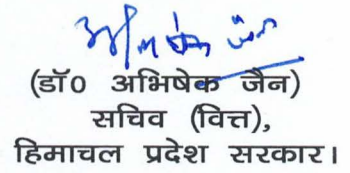 अभिषेक जैन
(डॉ0 अभिषेक जैन)
सचिव (वित्त),
हिमाचल प्रदेश सरकार।